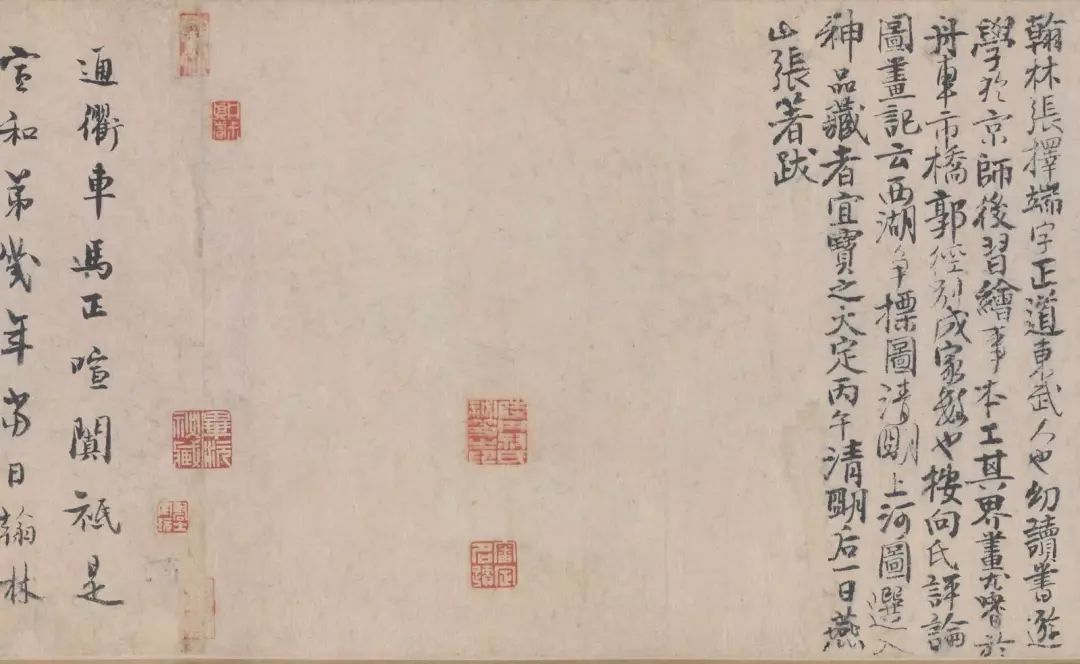 翰林張擇端字正道東武人也幼讀書遊
學於京師後習繪事本工其界畫尤嗜於
舟車市橋郭徑別成家數也按向氏評論
圖畫記云西湖爭標圖清明上河圖選入
神品藏者宜寶之大定丙午清明后一日燕
山張著跋
審定名蹟
畢沅祕藏
通衢車馬正喧闐祇是
宣和第幾年當日翰林